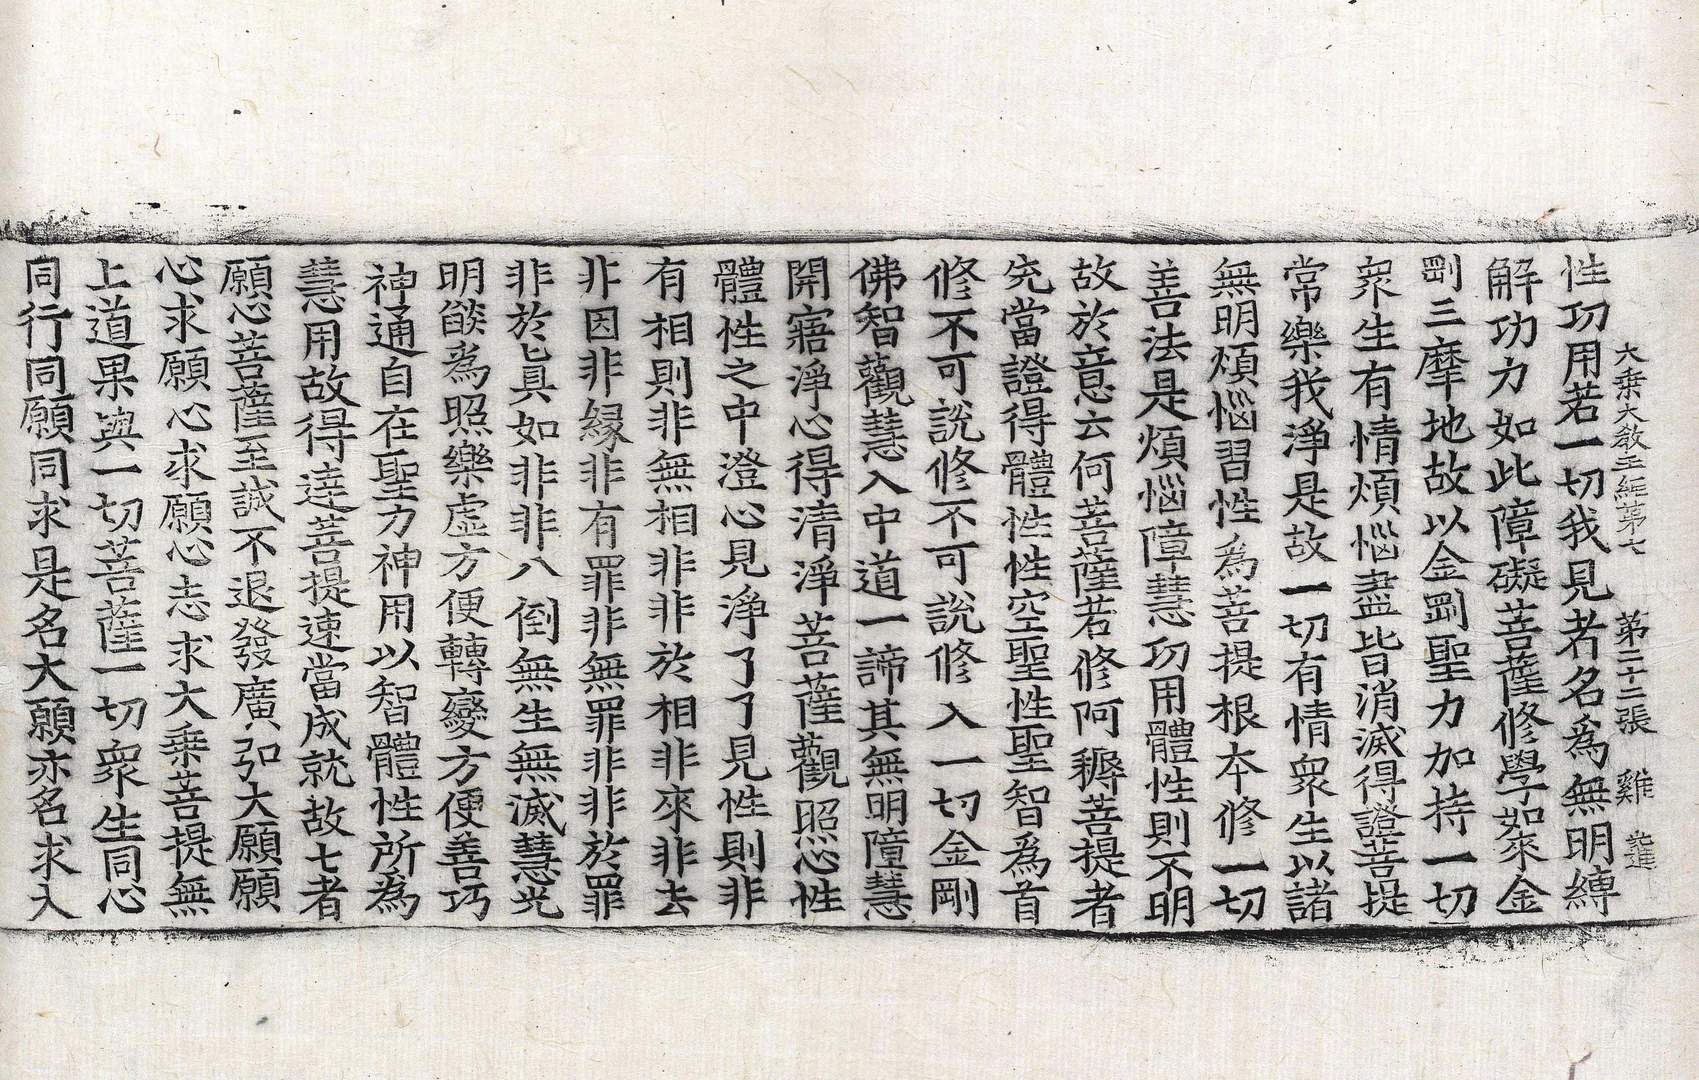 大乗大敎王經第七 第二十二張 雞
性功用若一切我見者名爲無明縛
解功力如此障礙菩薩修學如來金
剛三摩地故以金剛聖力加持一切
衆生有情煩惱盡皆消滅得證菩提
常樂我淨是故一切有情衆生以諸
無明煩惱習性爲菩提根本修一切
善法是煩惱障慧功用體性則不明
故於意云何菩薩若修阿耨菩提者
究當證得體性性空聖性聖智爲首
修不可說修不可說修入一切金剛
佛智觀慧入中道一諦其無明障慧
開寤淨心得清淨菩薩觀照心性
體性之中澄心見淨了了見性則非
有相則非無相非非於相非來非去
非因非緣非有罪非無罪非非於罪
非於眞如非非八倒無生無滅慧光
明燄爲照樂虛方便轉變方便善巧
神通自在聖力神用以智體性所爲
慧用故得達菩提速當成就故七者
願心菩薩至誠不退發廣弘大願願
心求願心求願心志求大乗菩提無
上道果與一切菩薩一切衆生同心
同行同願同求是名大願亦名求大